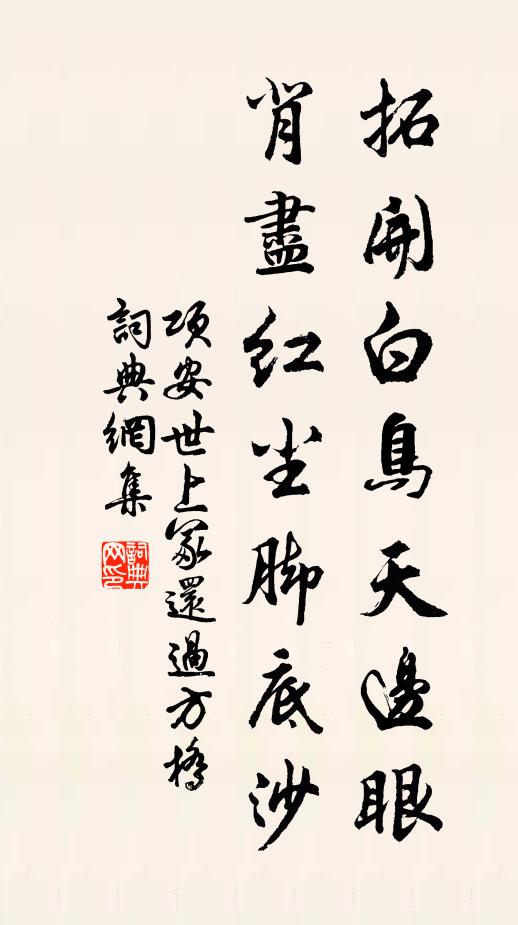 拓開白鳥天邊眼
肖盡紅尘脚底沙
項安世上冢還過方橋
詞典網集
詞典网印